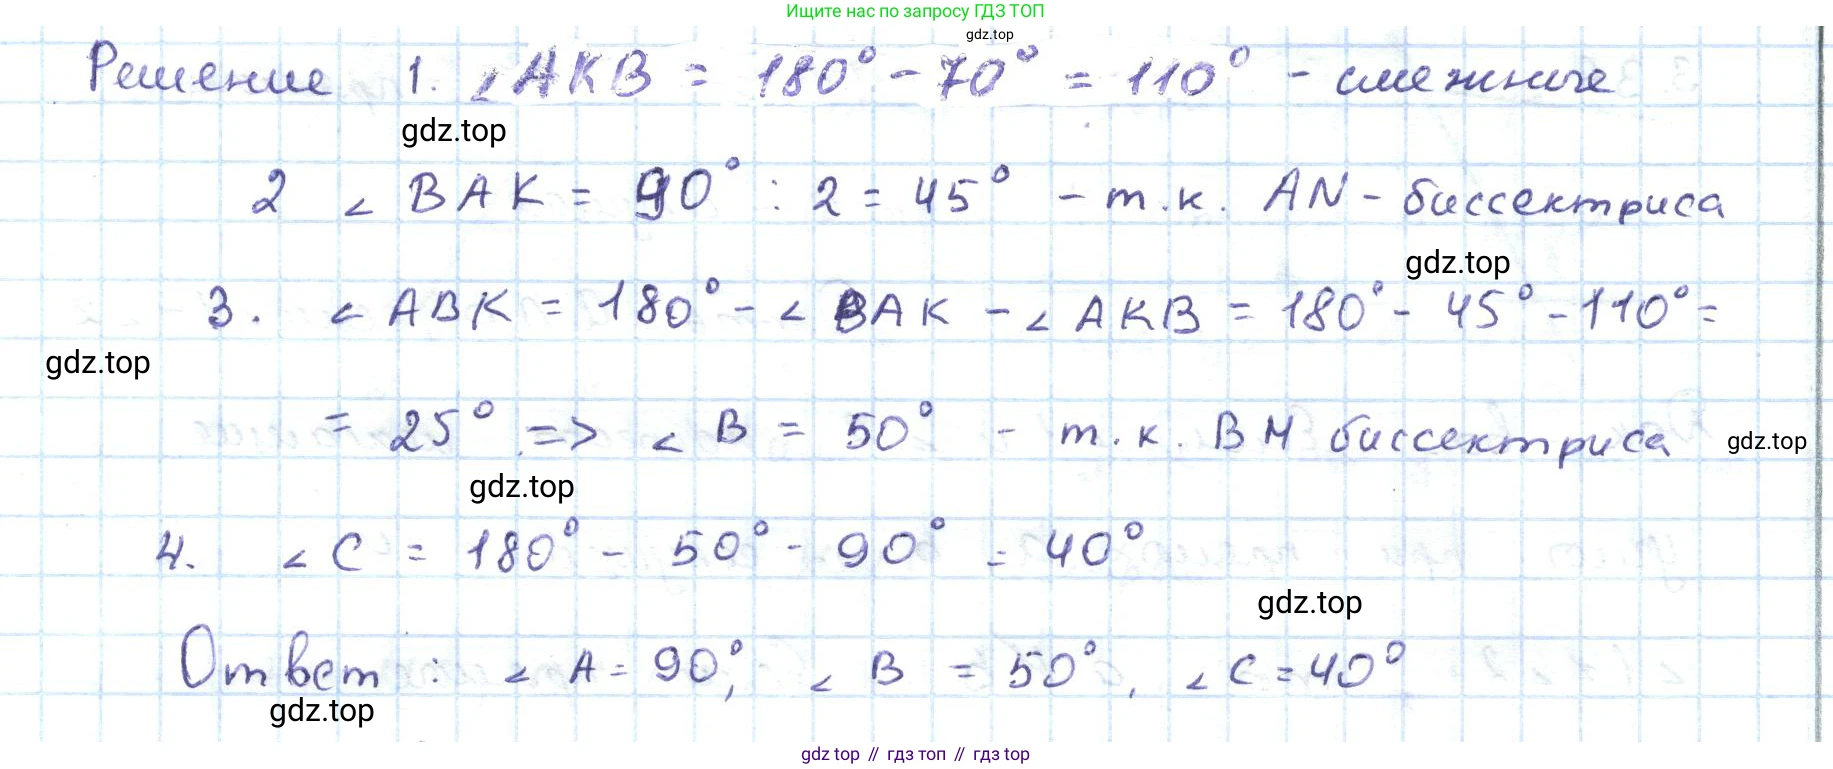 Ищите нас по запросу ГДЗ ТОП
gdz.top
Решение 1. ∠AKB = 180° - 70° = 110° - смежные
gdz.top
2 ∠BAK = 90° : 2 = 45° - т.к. AN - биссектриса
gdz.top
3. ∠ABK = 180° - ∠BAK - ∠AKB = 180° - 45° - 110° =
gdz.top
= 25° => ∠B = 50° - т.к. BM биссектриса
gdz.top
gdz.top
4. ∠C = 180° - 50° - 90° = 40°
gdz.top
Ответ: ∠A = 90°, ∠B = 50°, ∠C = 40°
gdz.top
gdz top // гдз топ // гдз top